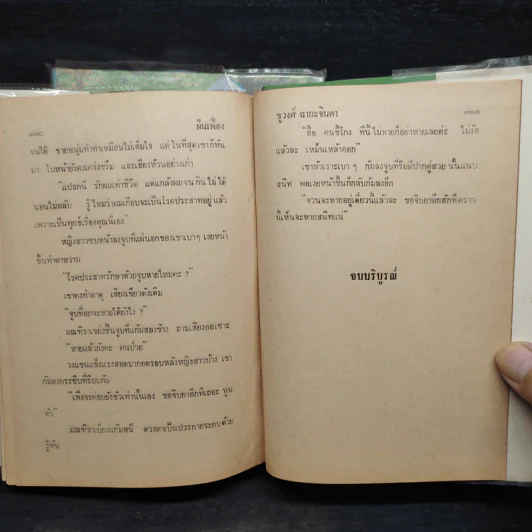 ๗๑๐ ผืนเฟื่อง
จนได้ ชายหนุ่มทำท่าเหมือนไม่เต็มใจ แต่ในที่สุดเขาก็หัน
มา ใบหน้ายังคงเคร่งขรึม และเสียงห้วนอย่างเก่า
"แปลกนี่ รักผมเท่าชีวิต แต่แกล้งผมจนกินไม่ได้
นอนไม่หลับ รู้ไหมว่าผมเกือบจะเป็นโรคประสาทอยู่แล้ว
เพราะเป็นทุกข์เรื่องคุณนี่เอง"
หญิงสาวซบหน้าลงจูบที่แผ่นอกของเขาเบาๆ เงยหน้า
ขึ้นทำตาหวาน
"โรคประสาทรักษาด้วยจูบหายไหมคะ ?"
เขาคงทำตาดุ เสียงเขียวดังเดิม
"จูบที่อกจะหายได้ยังไง ?"
มณฑิราเขย่งขึ้นจูบที่แก้มสองข้าง ถามเสียงออเซาะ
"หายแล้วยังคะ คนป่วย"
วงแขนแข็งแรงสอดมากอดรอบหลังหญิงสาวบ้าง เขา
ก้มลงกระซิบที่ริมแก้ม
"เพิ่งจะค่อยยังชั่วเท่านั้นเอง ขอจิบยาอีกทีเถอะ ทูน
หัว"
มณฑิราเบี่ยงแก้มหนี ดวงตาเป็นประกายระยับด้วย
รู้ทัน
ชูวงศ์ ฉายะจินดา ๗๑๑
"อือ คนขี้โกง ทีนี้ไม่หายก็อย่าหายเลยค่ะ ไม่ง้อ
แล้วละ เหม็นเหล้าออก"
เขาหัวเราะเบาๆ ก้มลงจูบที่ริมฝีปากคู่สวยนั้นแนบ
สนิท พอเงยหน้าขึ้นก็กลับก้มลงอีก
"จวนจะหายอยู่เดี๋ยวนี้แล้วละ ขอจิบยาอีกสักทีคราว
นี้เห็นจะหายสนิทแน่"
จบบริบูรณ์